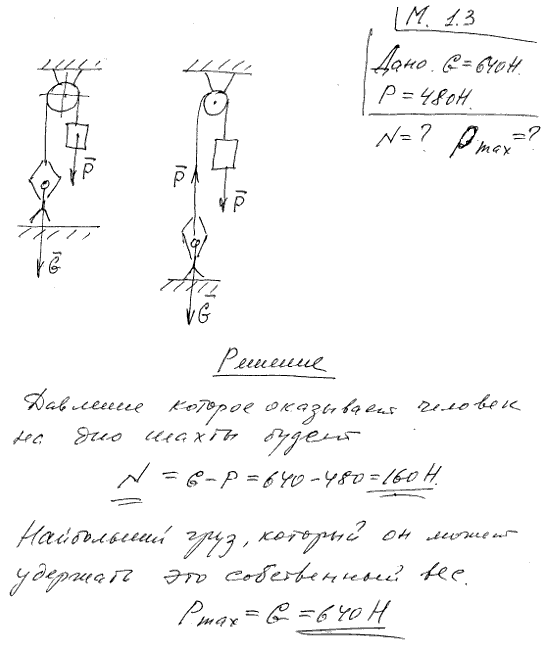 М. 1.3
Дано. G = 640Н.
P = 480Н.
N = ? Pmax = ?
P̄
Ḡ
P̄
P̄
Ḡ
Решение
Давление которое оказывает человек
на дно шахты будет
N = G - P = 640 - 480 = 160 Н.
Наибольший груз, который он может
удержать это собственный вес.
Pmax = G = 640 Н